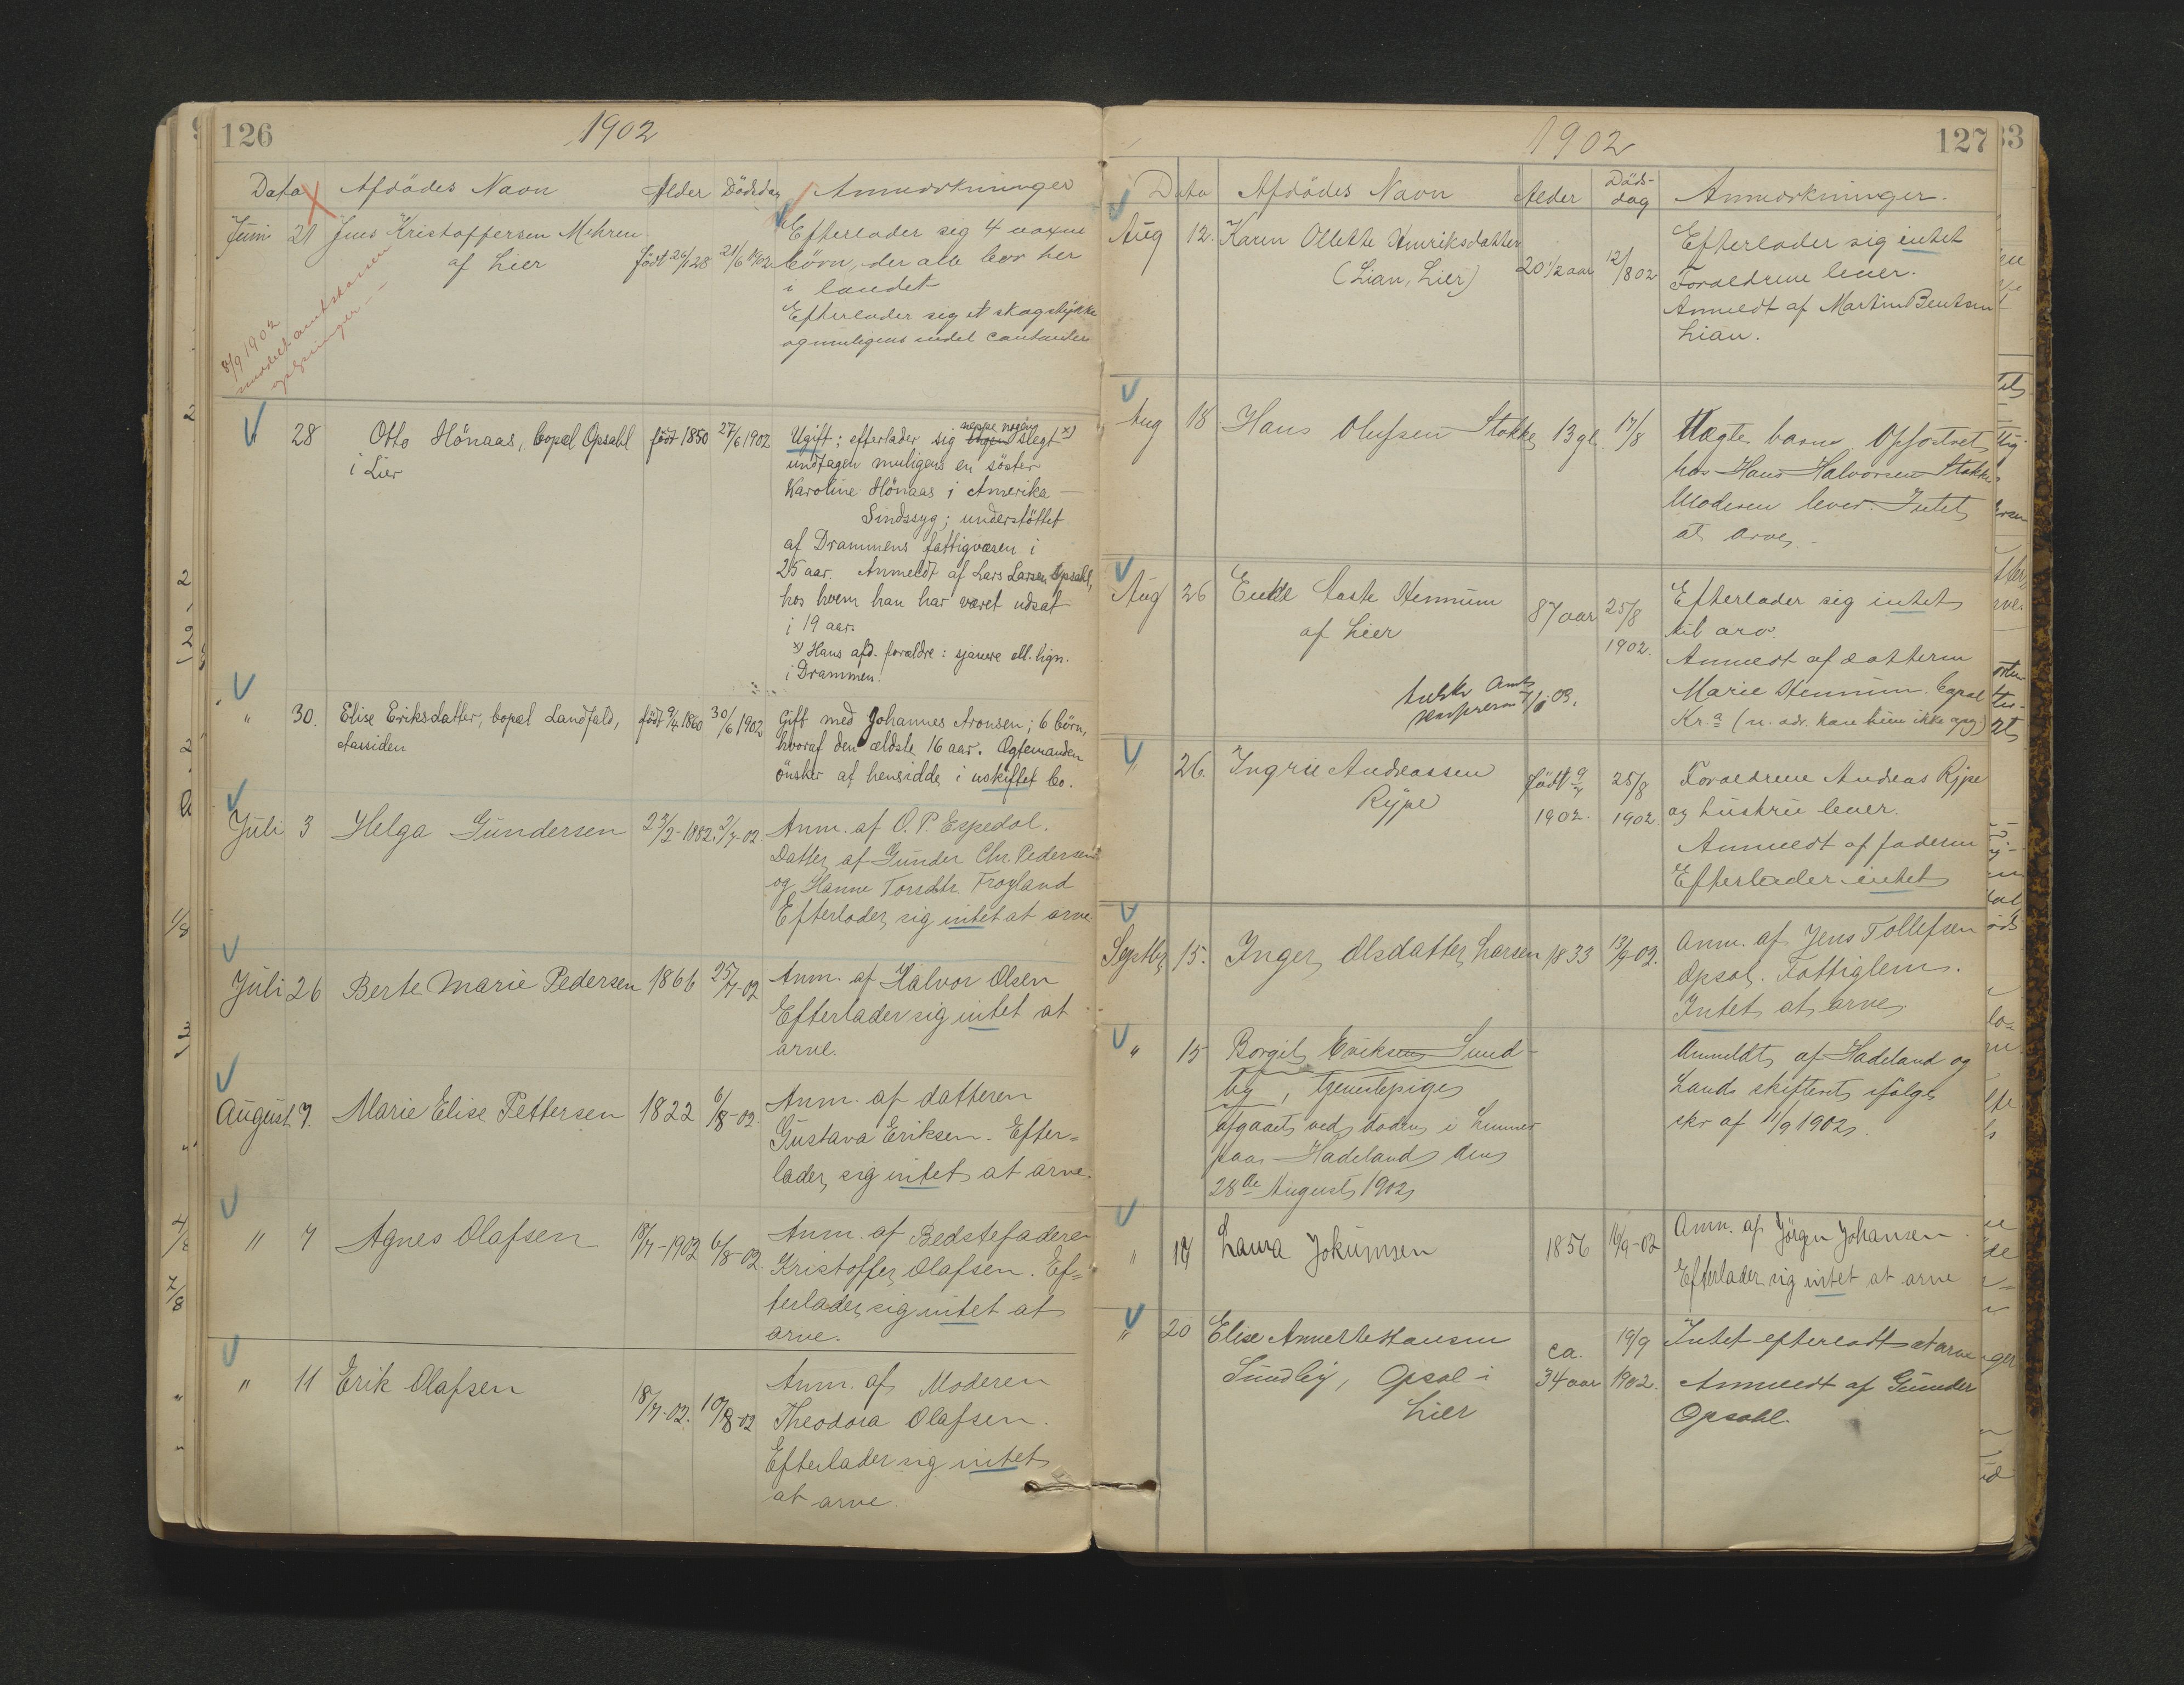 126
1902
Dato Afdödes Navn Alder Dödsdag Anmærkninger
Juni 21 Jens Kristoffersen Mehren
af Lier
födt 26/1 28 21/6 1902
Efterlader sig 4 voxne
börn, der alle bor her
i landet
Efterlader sig et skogstykke
og muligens endel contanter
8/9 1902
" 28 Otto Hönaas, bopæl Opsahl
i Lier
födt 1850 27/6 1902
Ugift; efterlader sig ingen neppe nogen slegt x)
undtagen muligens en söster
Karoline Hönaas i Amerika —
Sindssyg; understöttet
af Drammens fattigvæsen i
25 aar. Anmeldt af Lars Larsen Opsahl,
hos hvem han har været udsat
i 19 aar.
x) Hans afd. forældre: sjauere ell. lign.
i Drammen.
" 30. Elise Eriksdatter, bopæl Landfald,
Aassiden
födt 9/4 1860 30/6 1902
Gift med Johannes Aronsen; 6 börn,
hvoraf den ældste 16 aar. Ægtemanden
önsker at hensidde i uskiftet bo.
Juli 3 Helga Gundersen 23/2-1882. 2/7-02.
Anm. af O. P. Espedal.
Datter af Gunder Chr. Pedersen
og Hanne Torsdtr. Froyland
Efterlader sig intet at arve.
Juli 26 Berte Marie Pedersen 1866 25/7-02
Anm. af Halvor Olsen
Efterlader sig intet at
arve.
August 7. Marie Elise Pettersen 1822 6/8-02.
Anm. af datteren
Gustava Eriksen. Efter=
lader sig intet at arve.
" 7 Agnes Olafsen 18/7-1902 6/8-02.
Anm. af Bedstefaderen
Kristoffer Olafsen. Ef=
terlader sig intet at
arve.
" 11 Erik Olafsen 18/7-02. 10/8-02
Anm. af Moderen
Theodora Olafsen.
Efterlader sig intet
at arve.
1902
127
Dato Afdödes Navn Alder Döds-
dag Anmærkninger.
Aug 12. Karen Ollette Henriksdatter
(Lian, Lier)
20 1/2 aar 12/8 02
Efterlader sig intet
Forældrene lever.
Anmeldt af Martin Bentsen
Lian.
Aug 18 Hans Olufsen Stokke 13 gl. 17/8
Uægte barn. Opfostret
hos Hans Halvorsen Stokke
Moderen lever. Intet
at arve.
Aug 26 Enke Aaste Hennum
af Lier
87 aar 25/8
1902.
Efterlader sig intet
til arv.
Anmeldt af datteren
Marie Hennum. bopæl
Kr.a (n. adr. kan hun ikke opg)
" 26. Ingrid Andreassen
Rype
födt 9/7
1902. 25/8
1902.
Forældrene Andreas Rype
og hustru lever.
Anmeldt af faderen
Efterlader intet
Septbr 15. Inger Olsdatter Larsen 1833 13/9-02.
Anm. af Jens Tollefsen
Opsal. Fattiglem.
Intet at arve
" 15 Borgil Eriksen Sund-
by, tjenestepige
afgaaet ved döden i Lunner
paa Hadeland den
28de August 1902
Anmeldt af Hadeland og
Lands skifteret ifölge
skr af 11/9 1902.
" 17 Laura Jokumsen 1856 16/9-02
Anm. af Jörgen Johansen.
Efterlader sig intet at arve
" 20 Elise Annette Hansen
Sundby, Opsal i
Lier
ca.
34 aar 19/9
1902.
Intet efterladt at arve
Anmeldt af Gunder
Opsahl.